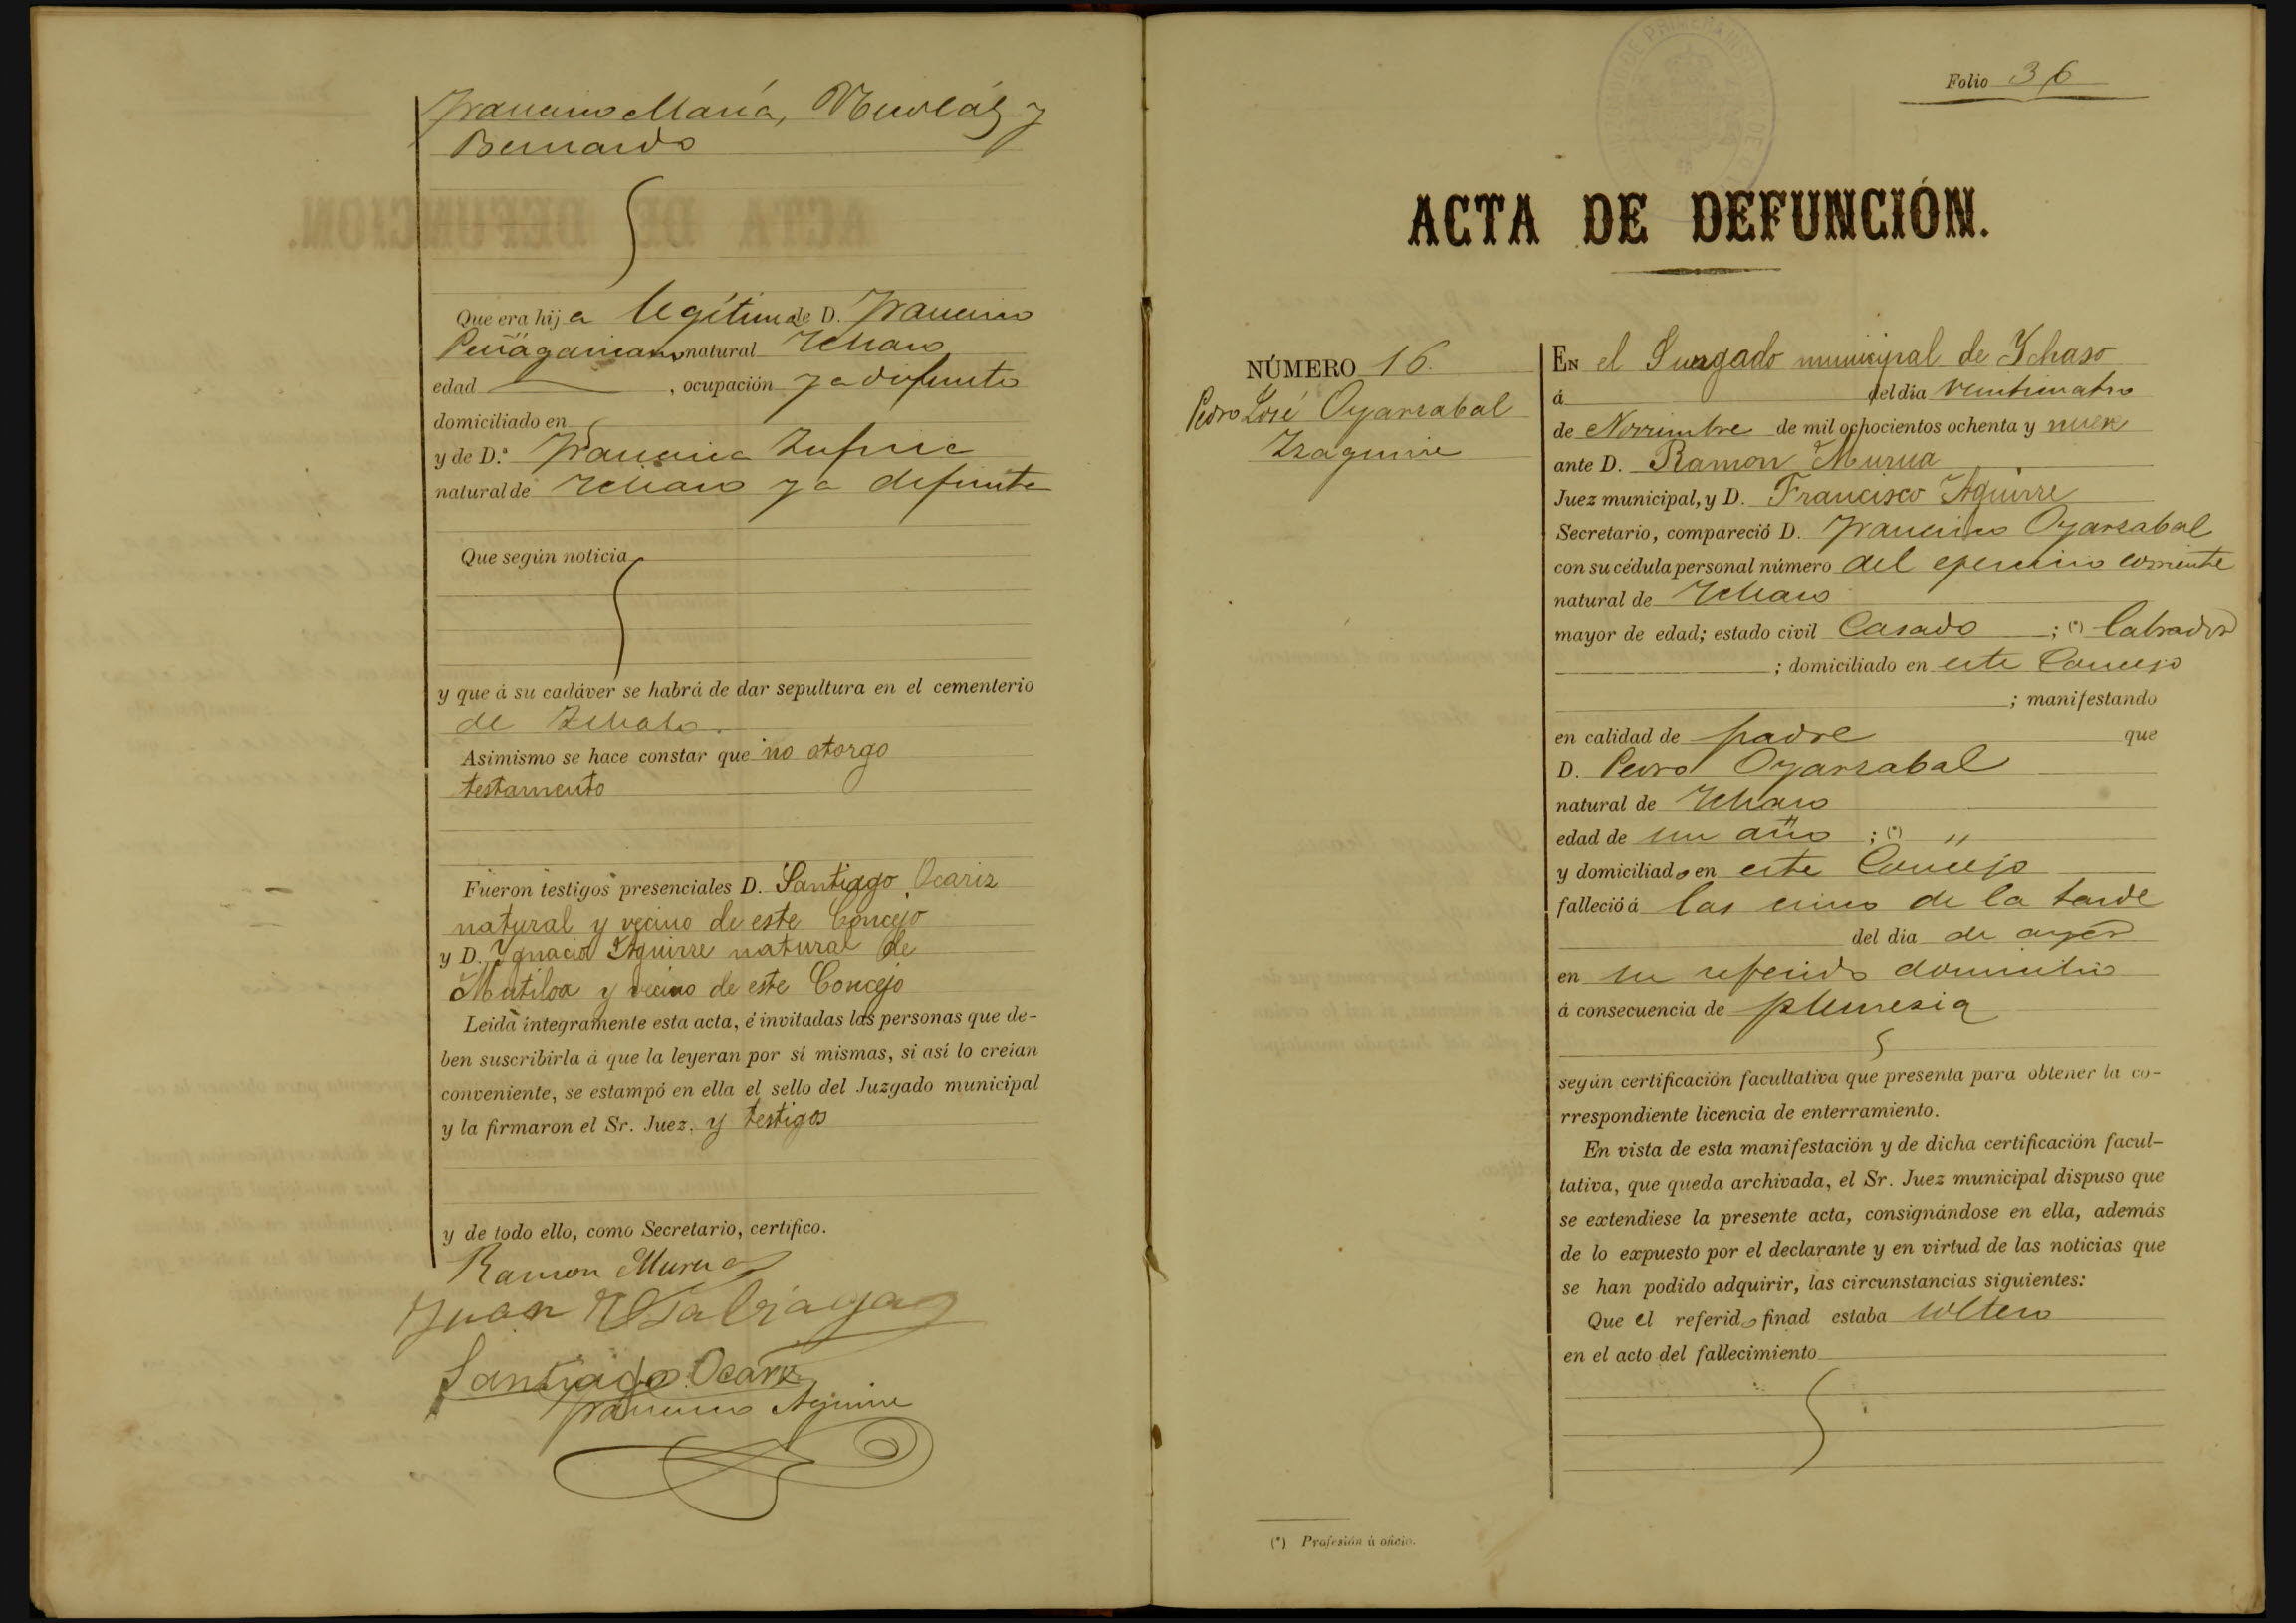 Francisco María, Nicolás y
Bernardo
Que era hija legítima de D. Francisco
Peñagaricano natural Ichaso
edad , ocupación ya difunto
domiciliado en
y de D.ª Francisca Zufiria
natural de Ichaso ya difunta
Que según noticia
y que á su cadáver se habrá de dar sepultura en el cementerio
de Ichaso.
Asimismo se hace constar que no otorgo
testamento
Fueron testigos presenciales D. Santiago Ocariz
natural y vecino de este Concejo
y D. Ygnacio Aguirre natural de
Mutiloa y vecino de este Concejo
Leida íntegramente esta acta, é invitadas las personas que de-
ben suscribirla á que la leyeran por sí mismas, si así lo creían
conveniente, se estampó en ella el sello del Juzgado municipal
y la firmaron el Sr. Juez, y testigos
y de todo ello, como Secretario, certifico.
Ramon Murua
Juan
Santiago Ocariz
Francisco Aguirre
Folio 36
ACTA DE DEFUNCIÓN.
NÚMERO 16.
Pedro José Oyarzabal
Yzaguirre
EN el Juzgado municipal de Ychaso
á del dia veinticuatro
de Noviembre de mil ochocientos ochenta y nueve
ante D. Ramon Murua
Juez municipal, y D. Francisco Aguirre
Secretario, compareció D. Francisco Oyarzabal
con su cédula personal número del ejercicio corriente
natural de Ichaso
mayor de edad; estado civil Casado ; (*) labrador
; domiciliado en este Concejo
; manifestando
en calidad de padre que
D. Pedro Oyarzabal
natural de Ichaso
edad de un año ; (*) "
y domiciliado en este Concejo
falleció á las cinco de la tarde
del dia de ayer
en su referido domicilio
á consecuencia de pleuresia
según certificación facultativa que presenta para obtener la co-
rrespondiente licencia de enterramiento.
En vista de esta manifestación y de dicha certificación facul-
tativa, que queda archivada, el Sr. Juez municipal dispuso que
se extendiese la presente acta, consignándose en ella, además
de lo expuesto por el declarante y en virtud de las noticias que
se han podido adquirir, las circunstancias siguientes:
Que el referido finad estaba soltero
en el acto del fallecimiento
(*) Profesión ú oficio.